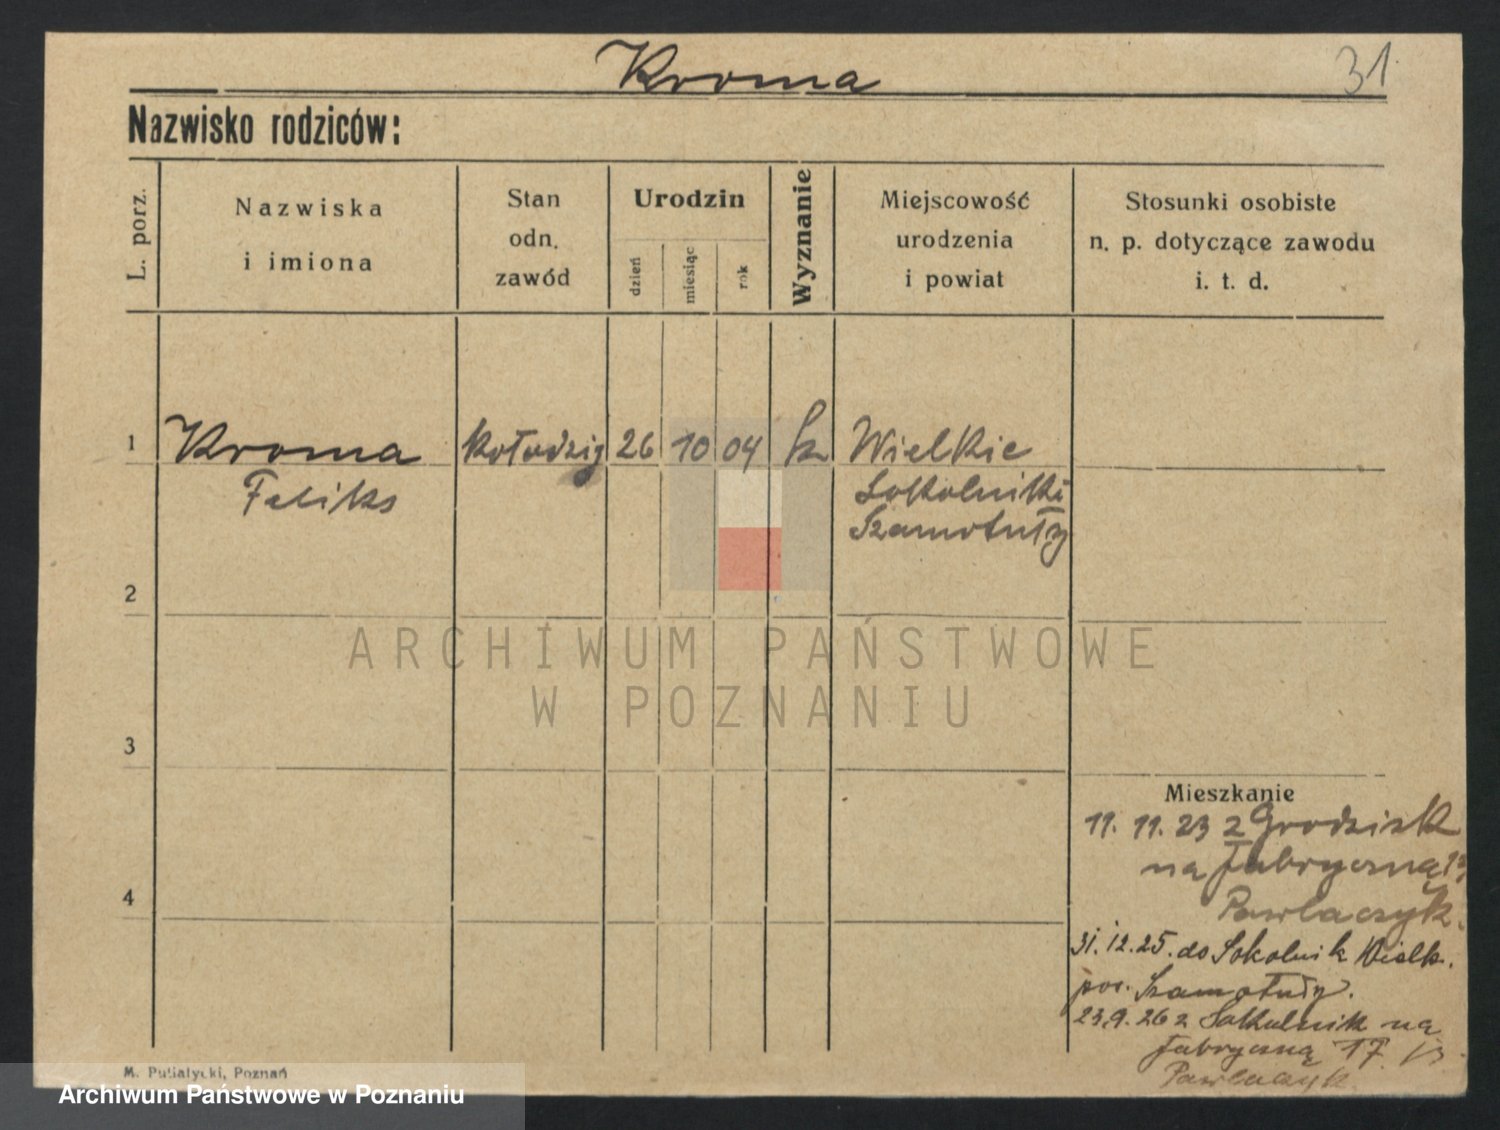 Kroma
31
Nazwisko rodziców:
L. porz.
Nazwiska
i imiona
Stan
odn.
zawód
Urodzin
dzień
miesiąc
rok
Wyznanie
Miejscowość
urodzenia
i powiat
Stosunki osobiste
n. p. dotyczące zawodu
i. t. d.
1
Kroma
Feliks
kołodziej
26
10
04
Wielkie
Sokolniki
Szamotuły
2
3
4
ARCHIWUM PAŃSTWOWE
W POZNANIU
Mieszkanie
11. 11. 23 z Grodzisk
na Fabryczną
Pawlaczyk.
31. 12. 25. do Sokolnik Wielk.
pow. Szamotuły.
23.9. 26 z Sokolnik na
Fabryczną 17
Pawlaczyk
M. Putiatycki, Poznań
Archiwum Państwowe w Poznaniu